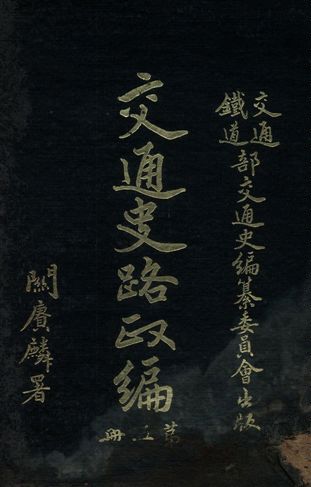 交通鐵道部交通史編纂委員會出版
交通史路政編
第五冊
關賡麟署